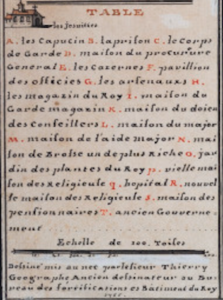 TABLE
les Jesuittes
A. les Capucin B. la prison C. le Corps
de Garde D. maison du procureur
General E. les Cazernes F. pavillion
des officies G. les arsenaux H.
les magazin du Roy I. maison du
Garde magazin K. maison du doien
des Conseillers L. maison du major
M. maison de l'aide major N. mai
son de Brosse un de plus Riche O. jar
din des plantes du Roy P. vielle mai
son des Religieuse Q. hopital R. nouvel
le maison des Religieuse S. maison des
pensionnaires T. ancien Gouverne
ment
Echelle de 100. Toises
Dessiné mis au net par le Sieur Thierry
Geographe Ancien dessinateur au Bu
reau des fortifications et Batiment du Roy